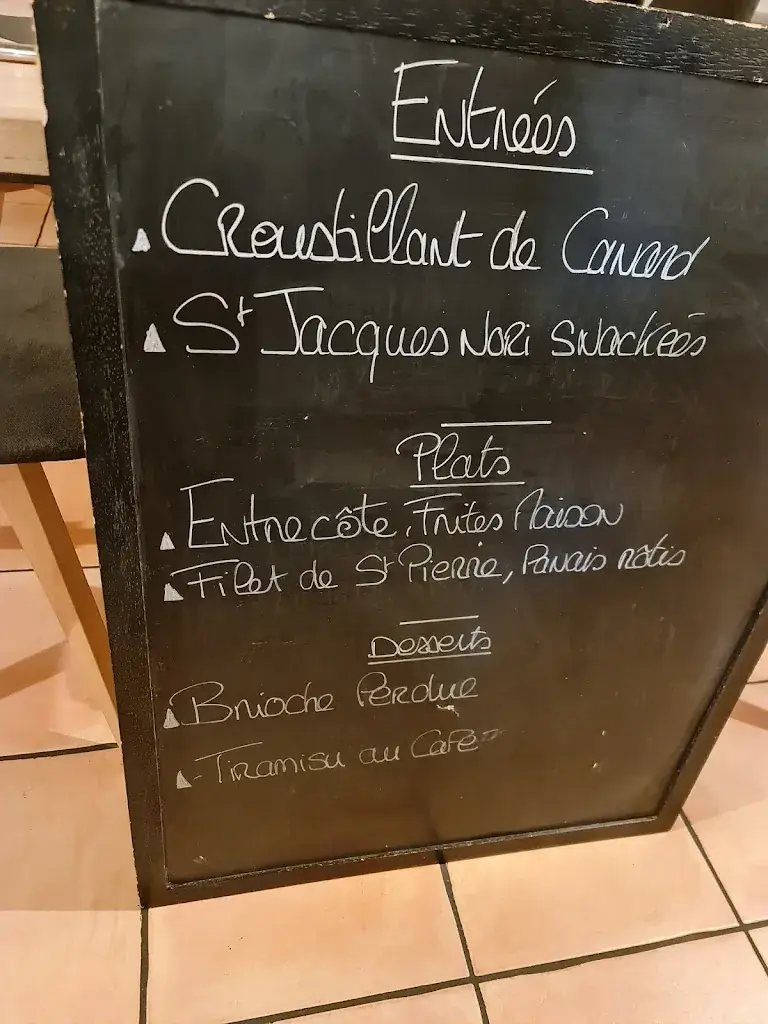 Entrées
Croustillant de Canard
St Jacques Nori snackées
Plats
Entrecôte, Frites Maison
Filet de St Pierre, Panais rôtis
Desserts
Brioche Perdue
Tiramisu au Café